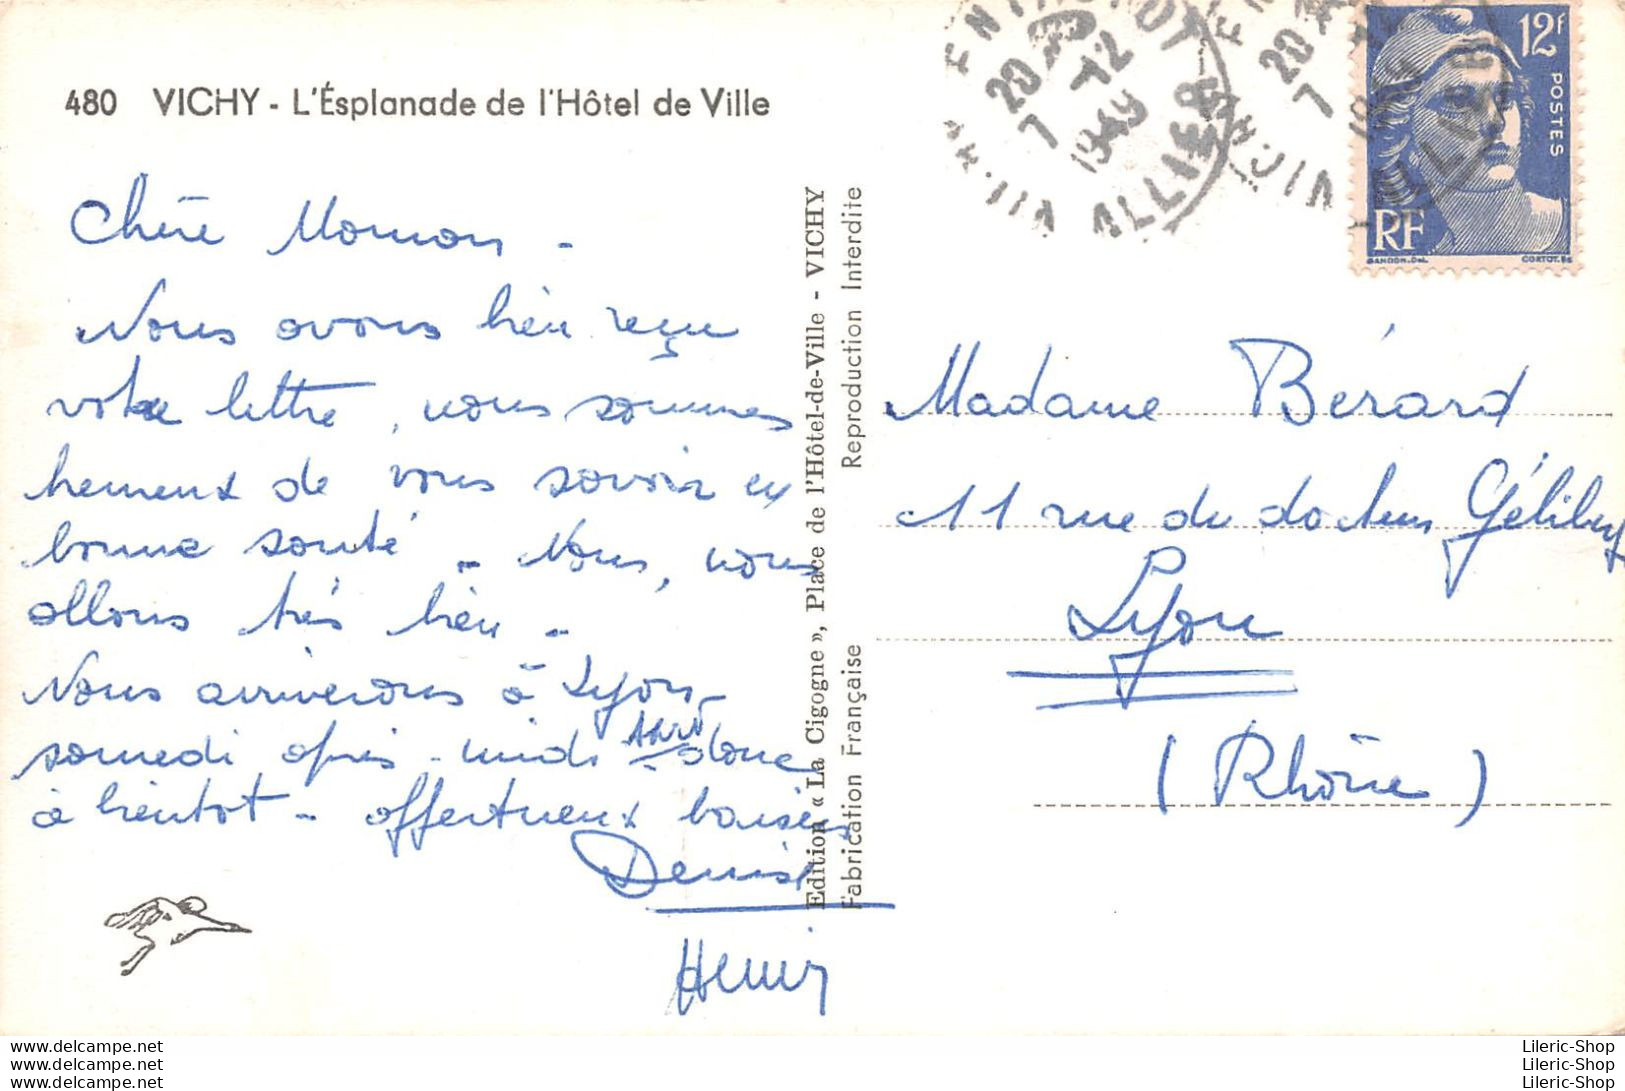 480 VICHY - L'Ésplanade de l'Hôtel de Ville
Chère Maman -
Nous avons bien reçu
votre lettre, nous sommes
heureux de vous savoir en
bonne santé - Nous, nous
allons très bien -
Nous arriverons à Lyon
samedi après-midi - donc
à bientôt - affectueux baisers
Denise
Henri
Edition « La Cigogne », Place de l'Hôtel-de-Ville - VICHY
Fabrication Française
Reproduction Interdite
20
7 12
1949
ALLIER
20
7
ALLIER
12F
POSTES
RF
GANDON.DEL.
CORTOT.SC
Madame Bérard
11 rue du docteur
Lyon
(Rhône)
www.delcampe.net
www.delcampe.net
www.delcampe.net
Lileric-Shop
Lileric-Shop
Lileric-Shop